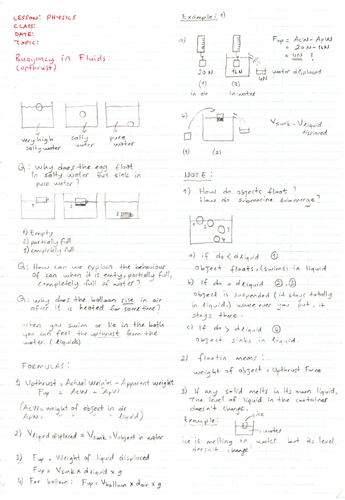 LESSON: PHYSICS
CLASS:
DATE:
TOPIC:
Buoyancy in Fluids:
(upthrust)
very high
salty water
salty
water
pure
water
Q: Why does the egg float
in salty water but sink in
pure water?
1
2
3
1) Empty
2) partially full
3) completely full
Q: How can we explain the behaviour
of can when it is empty, partially full,
completely full of water?
Q: Why does the balloon rise in air
after it is heated for some time?
When you swim or lie in the bath
you can feel the upthrust from the
water. (liquids)
FORMULAS:
1) Upthrust = Actual Weight - Apparent weight
Fup = AcW - ApW
(AcW = weight of object in air
ApW = " " " " liquid)
2) Vliquid displaced = Vsunk = Vobject in water
3) Fup = Weight of liquid displaced
Fup = Vsunk x dliquid x g
4) For balloon: Fup = Vballoon x dair x g
Example: 1)
a)
Fup = AcW - ApW
= 20N - 16N
= 4N !
20N
16N
4N
water displaced
(1)
(2)
in air
in water
b)
Vsunk = Vliquid
displaced
(1)
(2)
NOTE:
1) How do objects float?
How do submarine submerge?
1
2
3
4
a) if do < dliquid 1
object floats, (swims) in liquid
b) If do = dliquid 2, 3
object is suspended (it stays totally
in liquid) where ever you put, it
stays there.
c) If do > dliquid 4
object sinks in liquid.
2) floatin mems:
weight of object = Upthrust Force
3) If any solid melts in its own liquid,
The level of liquid in the container
doesn't change.
Example:
ice
water
ice is melting in water but its level
doesn't change